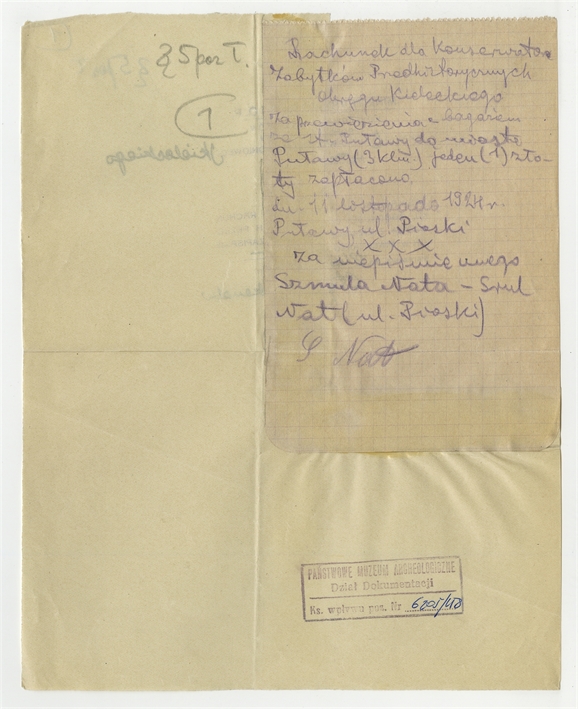 § 5 poz I.
1
Rachunek dla Konserwatora
Zabytków Predhistorycznych
okręgu Kieleckiego
Za przewiezienie z bagażem
ze st. Puławy do miasta
Puławy (3 klm) jeden (1) zło-
ty zapłacono.
dn. 11 listopada 1924 r.
Puławy ul. Piaski
X X X
Za niepiśmiennego
Szmula Nata - Srul
Nat (ul. Piaski)
S Nat
PAŃSTWOWE MUZEUM ARCHEOLOGICZNE
Dział Dokumentacji
Ks. wpływu poz. Nr